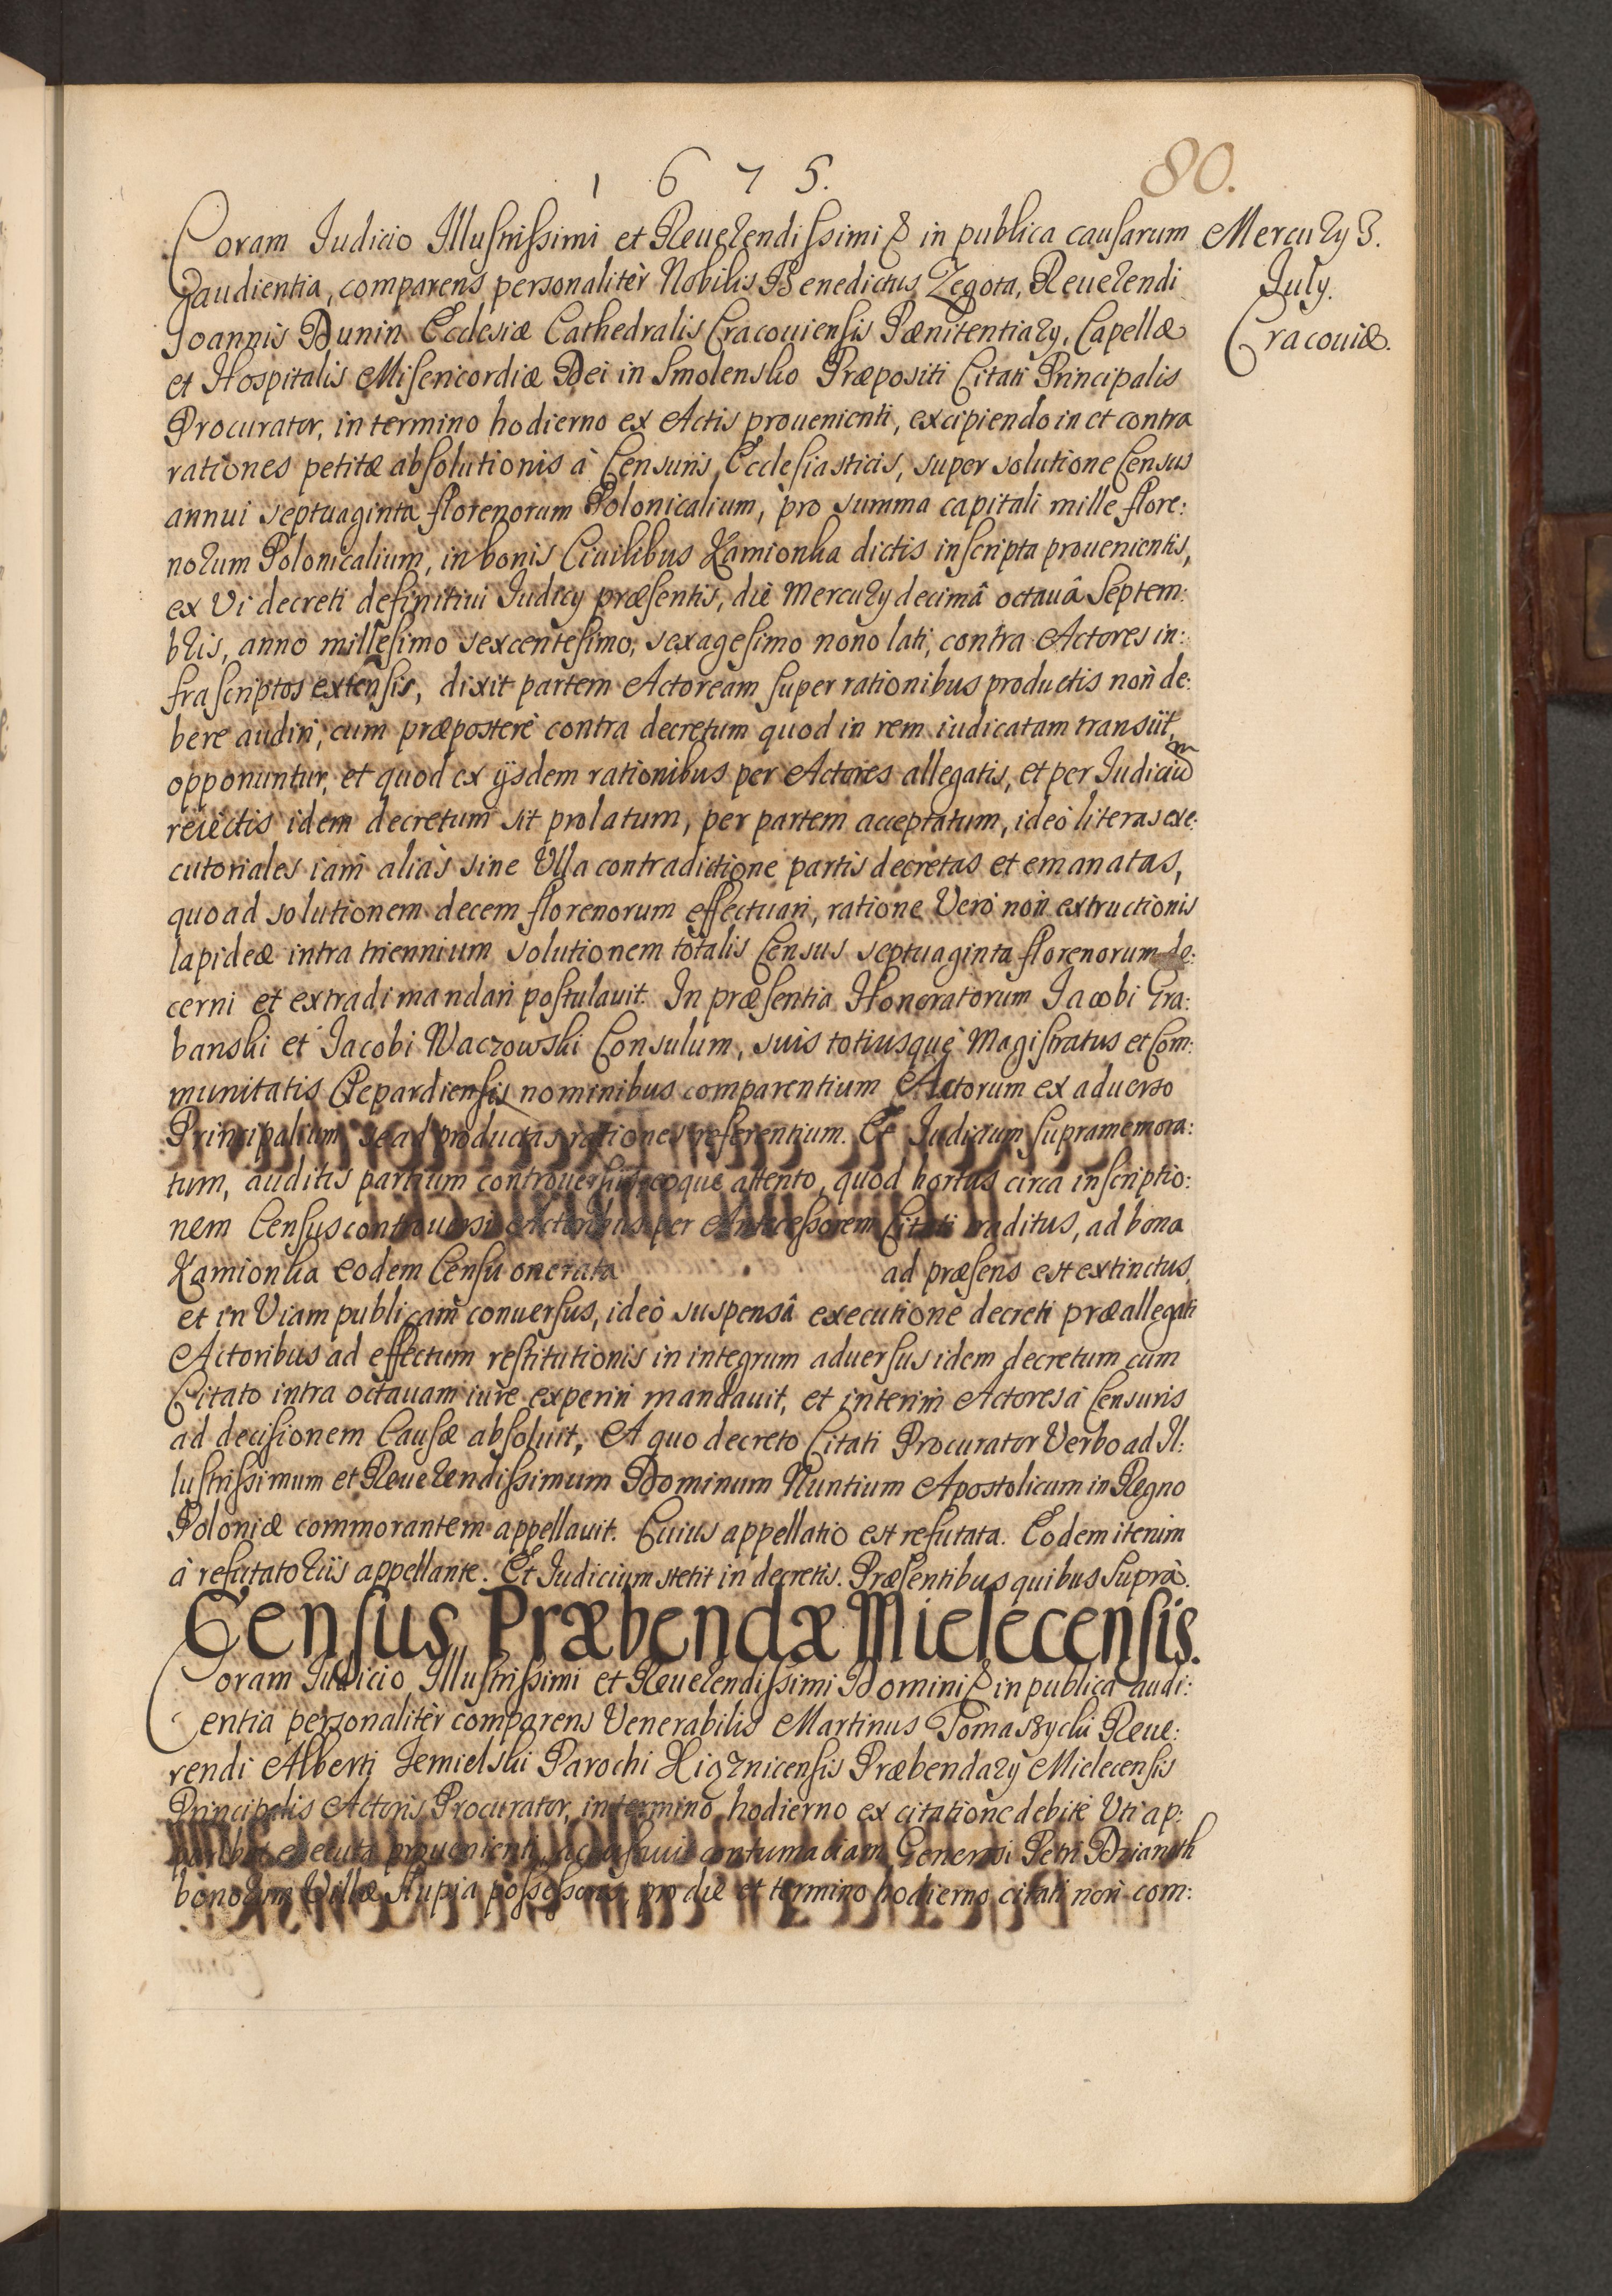 1 6 7 5.
80.
Coram Judicio Illustrissimi et Reuerendissimi & in publica causarum
Mercury 3.
July.
Cracouiæ.
audientia, comparens personalitèr Nobilis Benedictus Zegota, Reuerendi
Joannis Dunin Ecclesiæ Cathedralis Cracouiensis Pænitentiary, Capellæ
et Hospitalis Misericordiæ Dei in Smolensko Præpositi Citati Principalis
Procurator, in termino hodierno ex Actis prouenienti, excipiendo in et contra
rationes petitæ absolutionis à Censuris Ecclesiasticis, super solutione Census
annui septuaginta florenorum Polonicalium, pro summa capitali mille flore:
norum Polonicalium, in bonis Ciuilibus Kamionka dictis inscripta prouenientis,
ex Vi decreti definitiui Judicy præsentis, die Mercury decimâ octauâ Septem:
bris, anno millesimo sexcentesimo, sexagesimo nono lati, contra Actores in:
frascriptos extensis, dixit partem Actoream super rationibus productis non de:
bere audiri, cum præposterè contra decretum quod in rem iudicatam transiit,
opponuntur, et quod ex ijsdem rationibus per Actores allegatis, et per Judicium
reiectis idem decretum sit prolatum, per partem acceptatum, ideò literas exe:
cutoriales iam aliàs sine Vlla contradictione partis decretas et emanatas,
quoad solutionem decem florenorum effectuari, ratione Verò non extructionis
lapideæ intra triennium solutionem totalis Census septuaginta florenorum de:
cerni et extradi mandari postulauit. In præsentia Honoratorum Jacobi Gra:
banski et Jacobi Waczowski Consulum, suis totiusque Magistratus et Com:
munitatis Clepardiensis nominibus comparentium Actorum ex aduerso
Principalium, se ad productas rationes referentium. Et Judicium supramemora:
tum, auditis partium controuersijs, eoque attento, quod hortus circa inscriptio:
nem Census controuersi Actoribus per Antecessorem Citati traditus, ad bona
Kamionka eodem Censu onerata ad præsens est extinctus,
et in Viam publicam conuersus, ideò suspensâ executione decreti præallegati
Actoribus ad effectum restitutionis in integrum aduersus idem decretum cum
Citato intra octauam iure experiri mandauit, et interim Actores à Censuris
ad decisionem Causæ absoluit, A quo decreto Citati Procurator Verbo ad Il:
lustrissimum et Reuerendissimum Dominum Nuntium Apostolicum in Regno
Poloniæ commorantem appellauit. Cuius appellatio est refutata. Eodem iterum
à refutatorijs appellante. Et Judicium stetit in decretis. Præsentibus quibus Suprà.
Census Præbendæ Mielecensis.
Coram Judicio Illustrissimi et Reuerendissimi Domini & in publica audi:
entia personalitèr comparens Venerabilis Martinus Tomaszycki Reue:
rendi Alberti Jemielski Parochi Xigznicensis Præbendary Mielecensis
Principalis Actoris Procurator, in termino hodierno ex citatione debitè Vti ap:
executa prouenienti, accusauit contumaciam Generosi Petri
bonorum Villæ Słupia possessoris, pro die et termino hodierno citati non com: